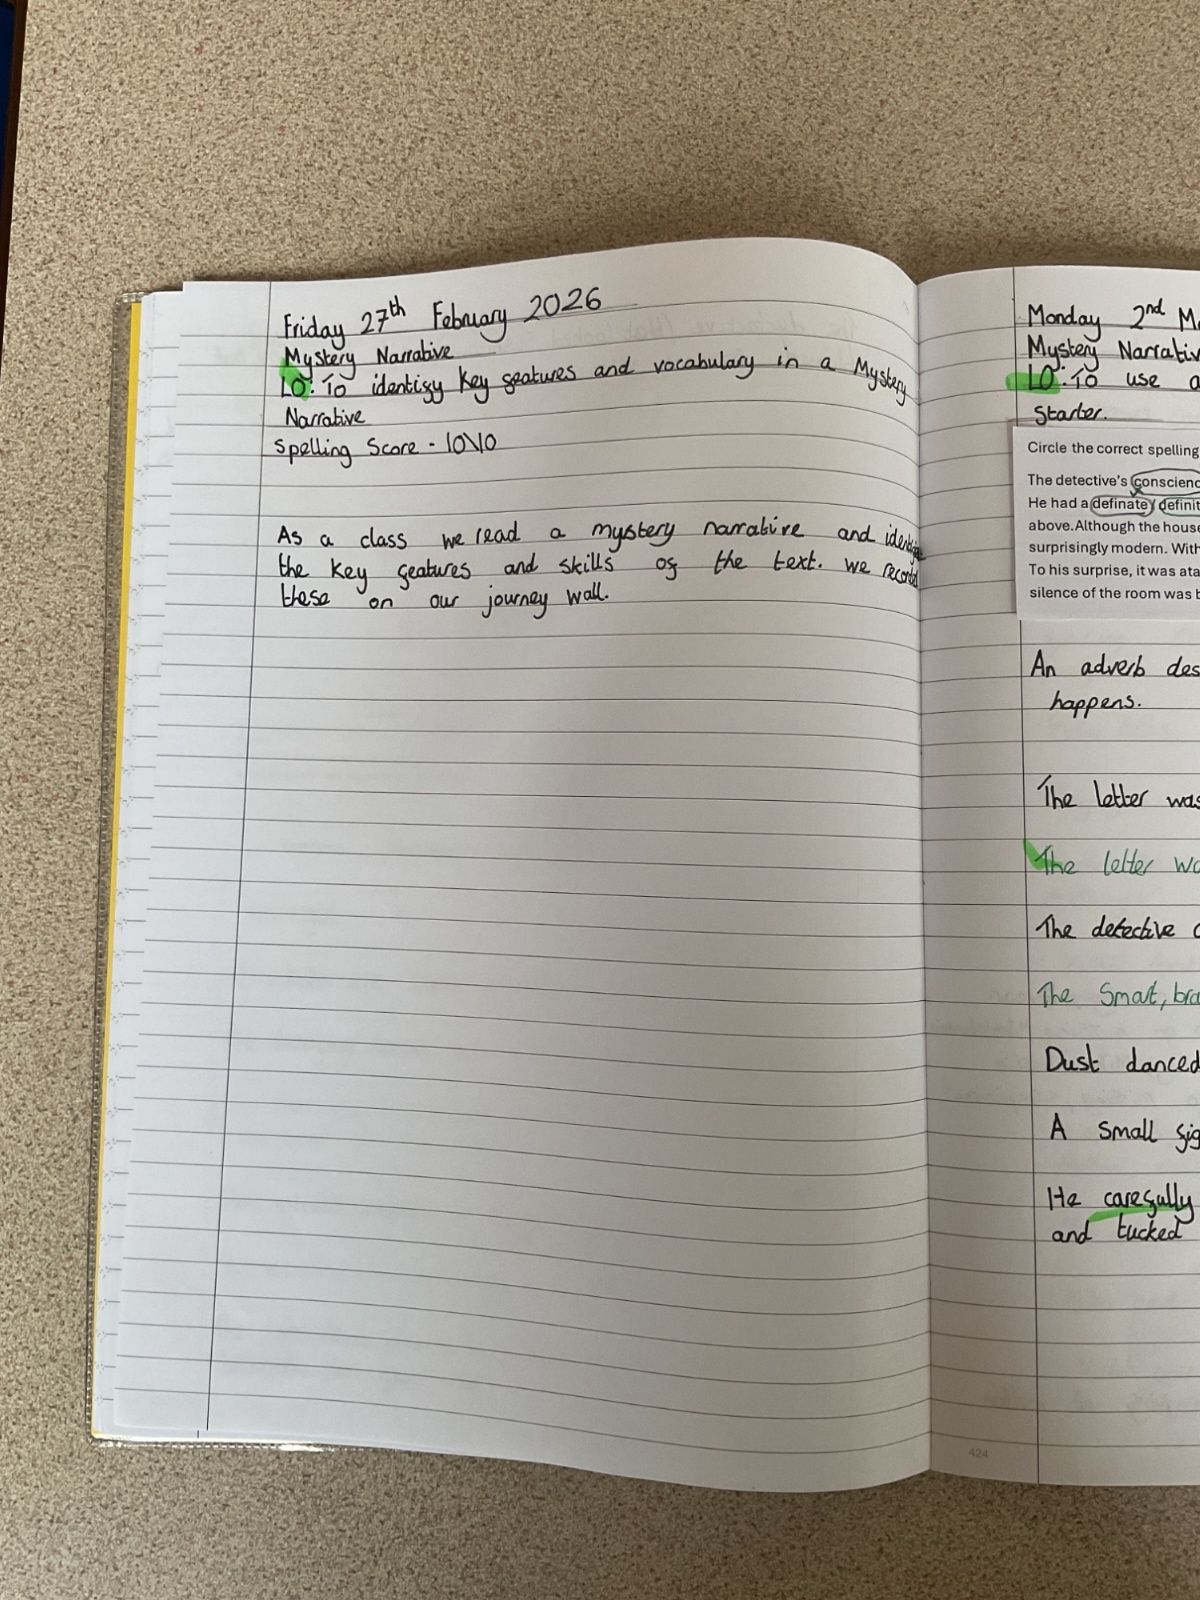 Friday 27th February 2026
Mystery Narrative
LO: To identify key features and vocabulary in a Mystery
Narrative
Spelling Score - 10\10
As a class we read a mystery narrative and
the key features and skills of the text. we
these on our journey wall.
Monday 2nd
Mystery
LO: To use
Starter.
Circle the correct spelling
The detective's
He had a definate/
above.Although the
surprisingly modern.
To his surprise, it was
silence of the room was
An adverb
happens.
The letter was
The letter
The detective
The Smat,
Dust danced
A small
He carefully
and tucked
424